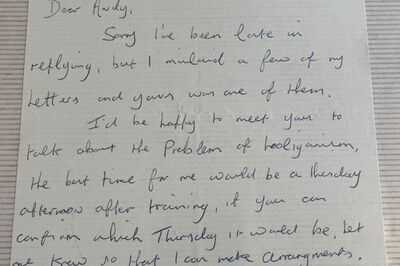 Dear Andy,
Sorry I've been late in
replying, but I mislaid a few of my
letters and yours was one of them.
I'd be happy to meet you to
talk about the Problem of hooliganism,
the best time for me would be a thursday
afternoon after training, if you can
confirm which Thursday it would be, let
me know so that I can make arrangments.